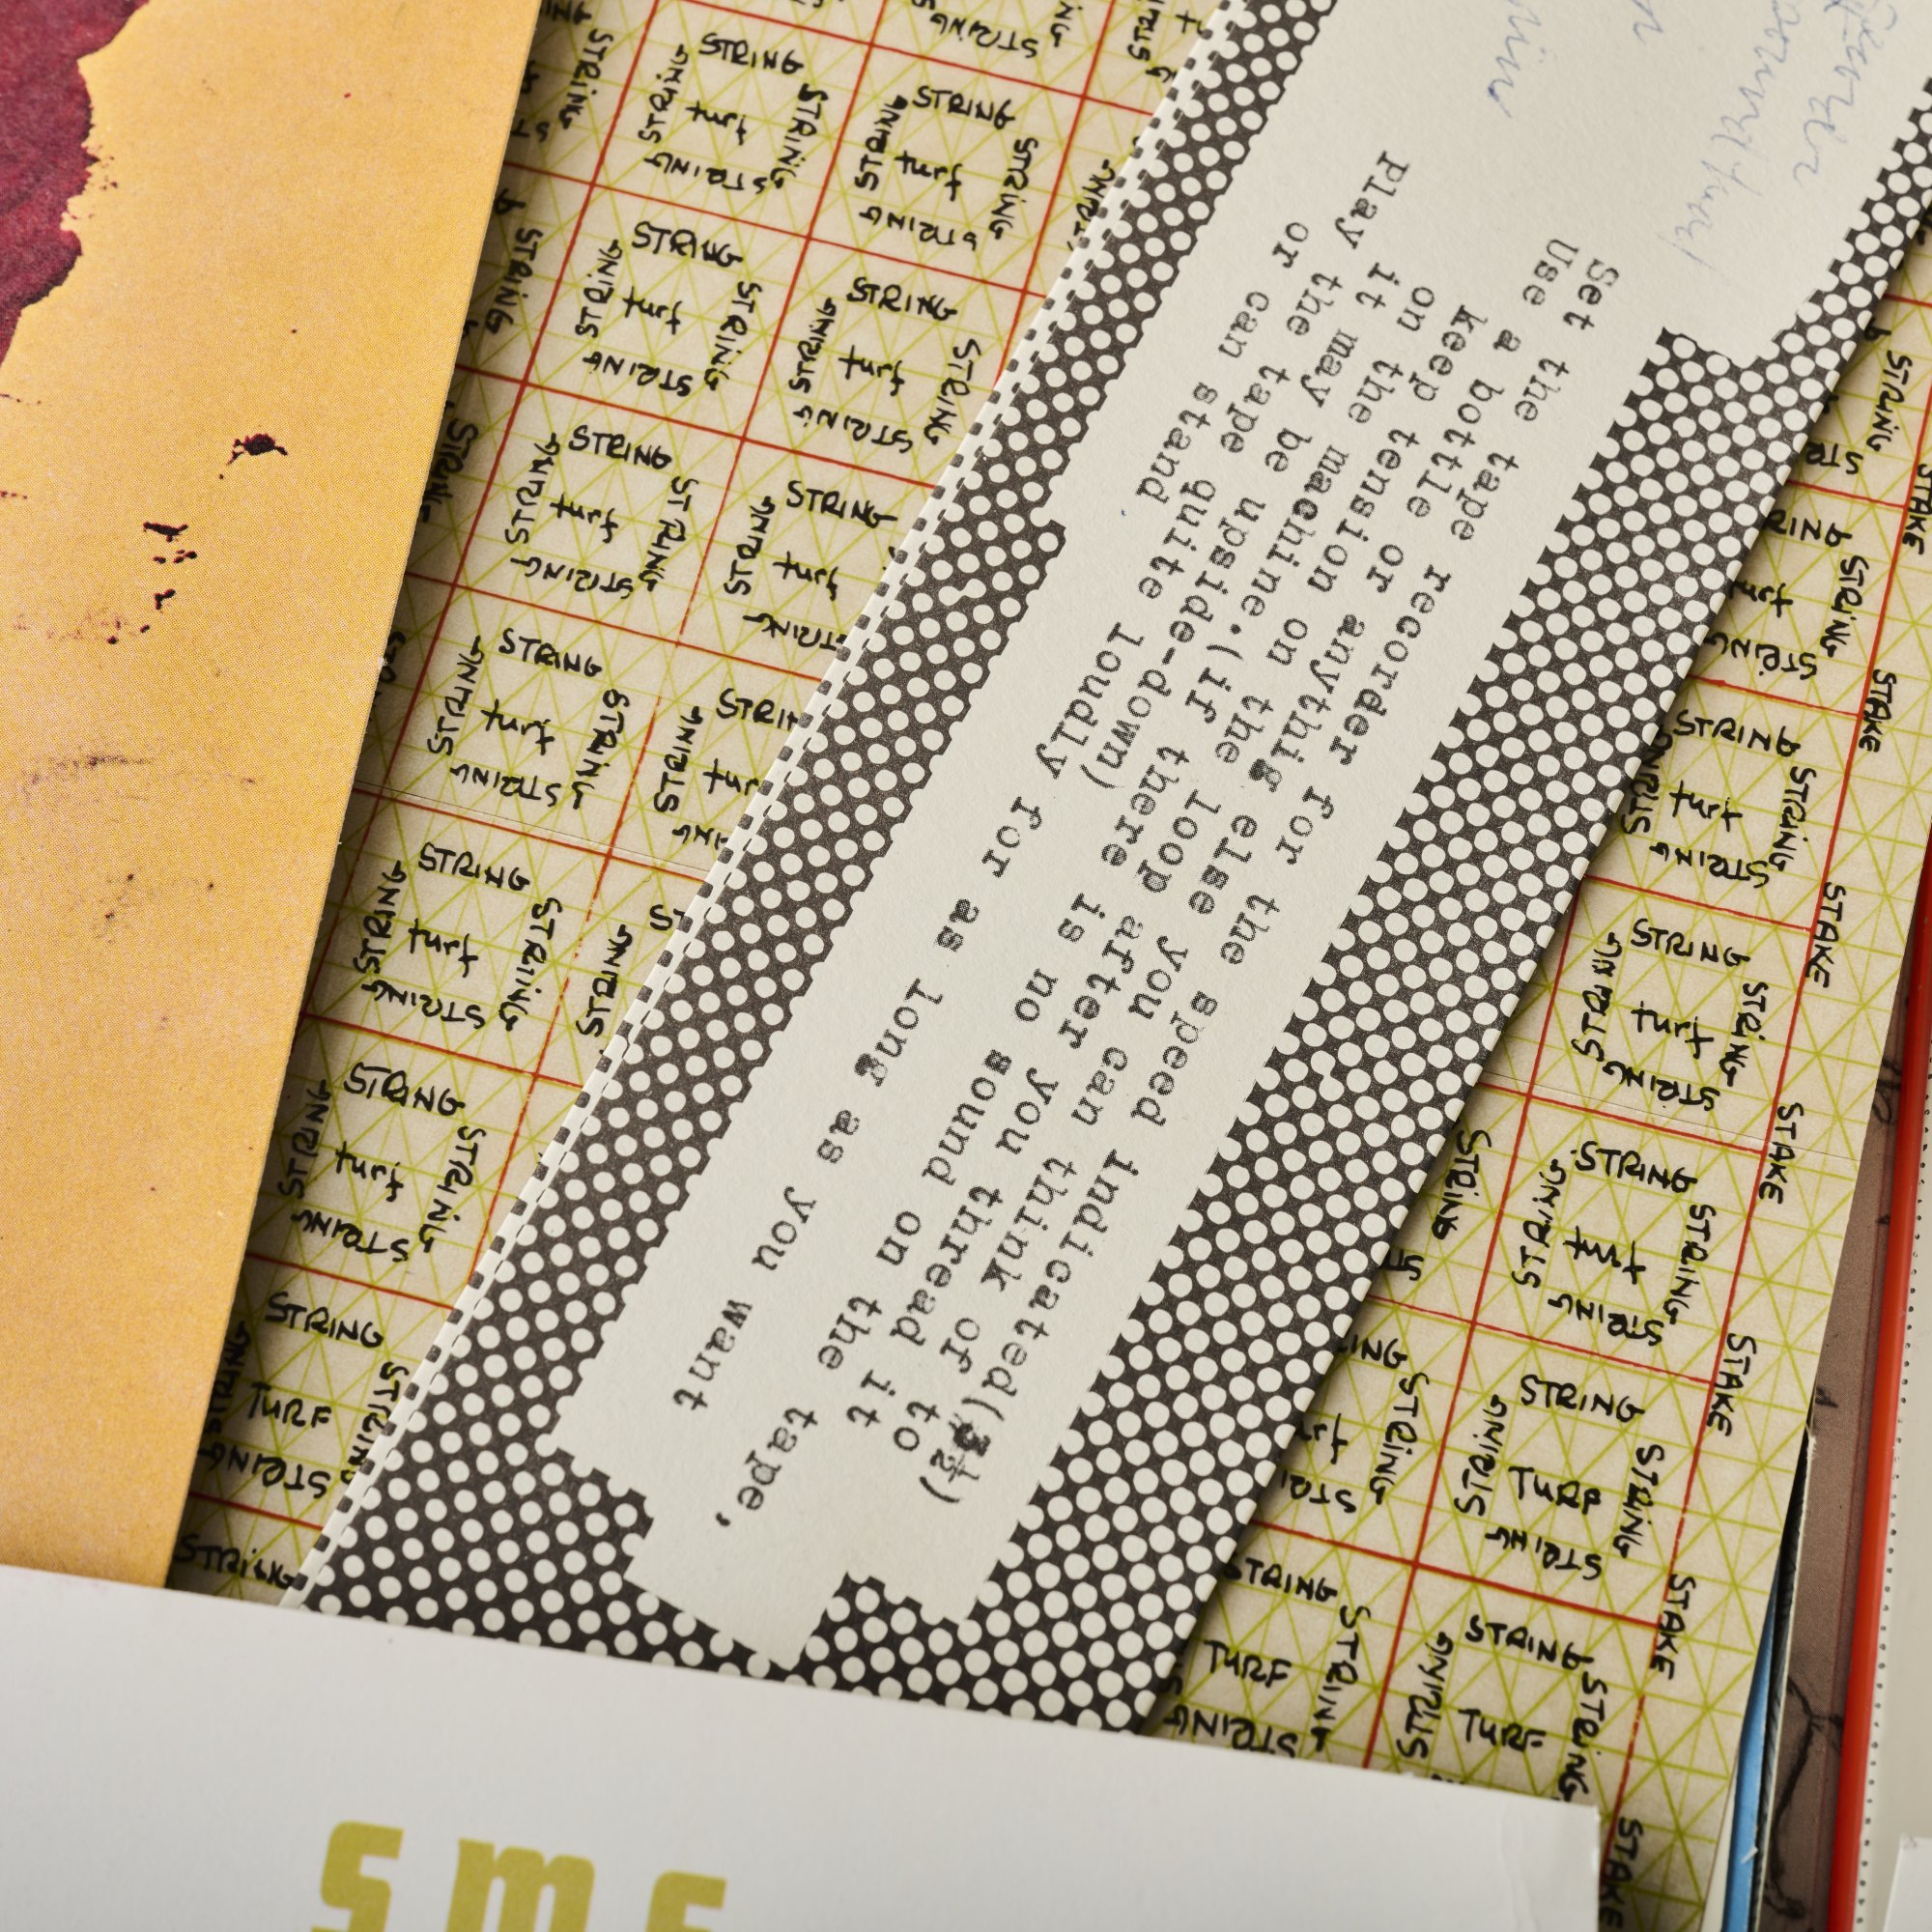 Set the tape recorder for the speed indicated(3½)
Use a bottle or anythig else you can think of to
keep tension on the loop after you thread it
on the machine.(if there is no sound on the tape,
it may be upside-down)
Play the tape quite loudly for as long as you want
or can stand
STRING
STRING turf STRING
STRING
STRING
STRING turf STRING
STRING
STRING
STRING turf STRING
STRING
STRING
STRING turf STRING
STRING
STRING
STRING turf STRING
STRING
STRING
STRING turf STRING
STRING
STRING
STRING turf STRING
STRING
STRING
STRING turf STRING
STRING
STRING
STRING turf STRING
STRING
STRING
STRING TURF STRING
STRING
STRING
STRING turf STRING
STRING
STRING
STRING turf STRING
STRING
STRING
STRING turf STRING
STRING
STRING
STRING TURF STRING
STRING
STRING
TURF STRING
STRING
STRING
STRING TURF STRING
STAKE
STAKE
STAKE
STAKE
STAKE
STAKE
STAKE
sms